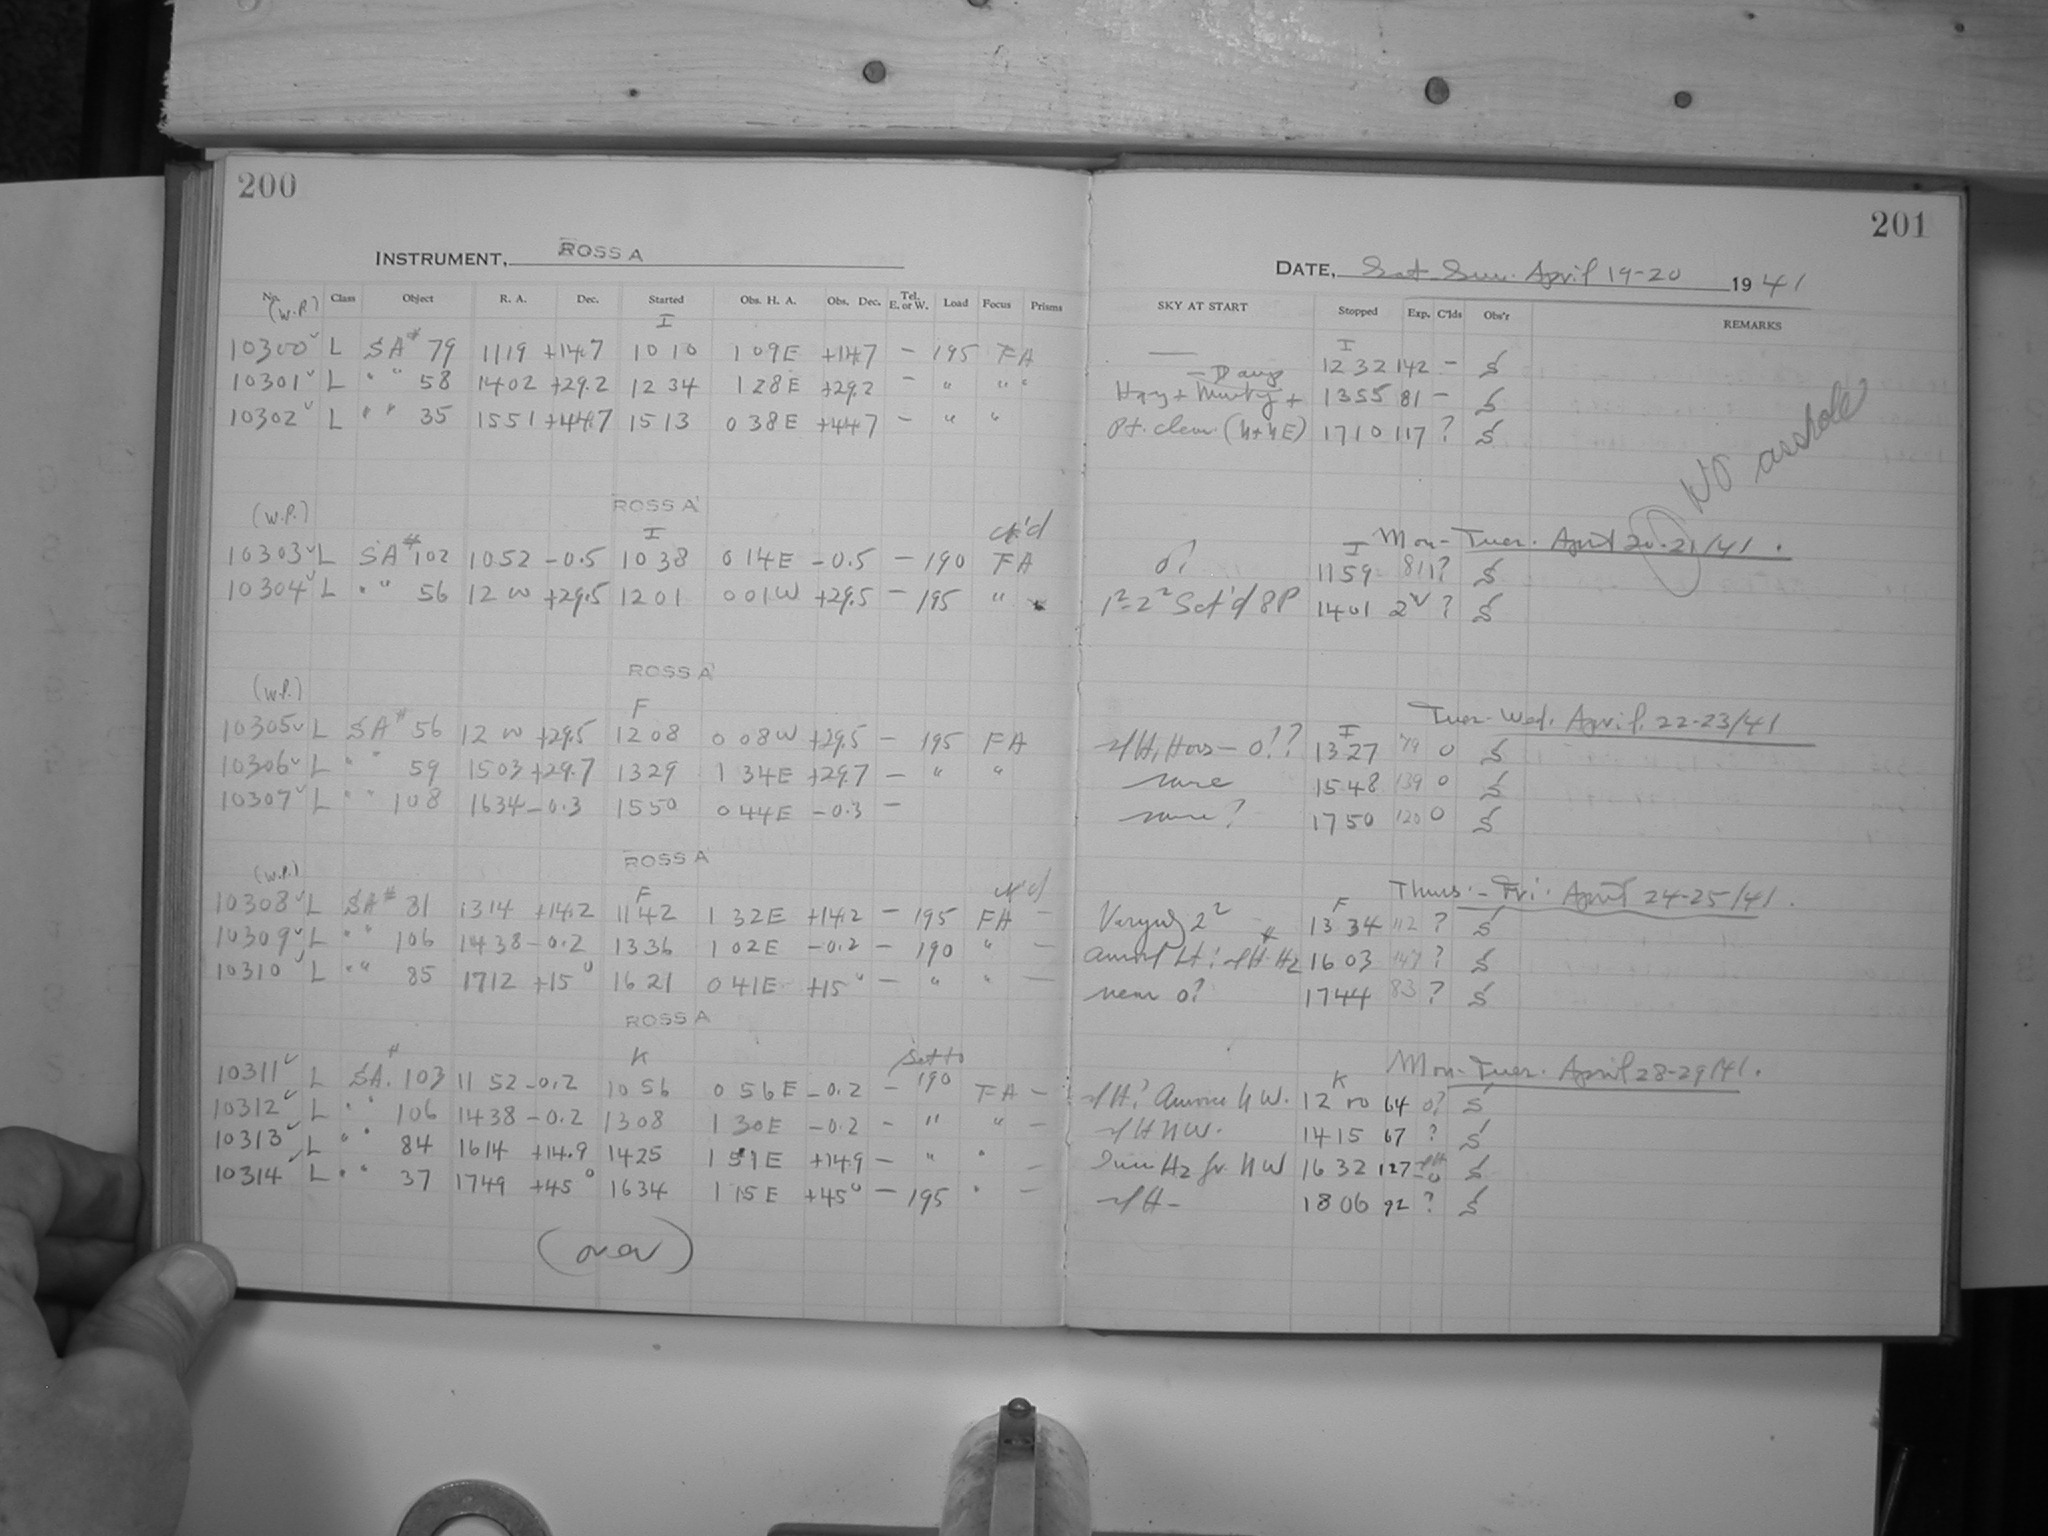 200
INSTRUMENT, ROSS A
No. Class Object R. A. Dec. Started Obs. H. A. Obs. Dec. Tel. E. or W. Load Focus Prisms
(W.P.) I
10300 L SA# 79 1119 +14.7 1010 1 09E +14.7 - 195 FA
10301 L " " 58 1402 +29.2 1234 1 28E +29.2 - " " "
10302 L " " 35 1551 +44.7 1513 0 38E +44.7 - " "
ROSS A
(W.P.) I
10303 L SA# 102 1052 -0.5 1038 0 14E -0.5 - 190 FA
10304 L " " 56 12 00 +29.5 1201 0 01W +29.5 - 195 "
ROSS A
(W.P.) F
10305 L SA# 56 12 00 +29.5 1208 0 08W +29.5 - 195 FA
10306 L " " 59 1503 +29.7 1329 1 34E +29.7 - " "
10307 L " " 108 1634 -0.3 1550 0 44E -0.3 -
ROSS A
(W.P.) F
10308 L SA# 81 1314 +14.2 1142 1 32E +14.2 - 195 FA -
10309 L " " 106 1438 -0.2 1336 1 02E -0.2 - 190 " -
10310 L " " 85 1712 +15° 1621 0 41E +15° - " " -
ROSS A
K Set to
10311 L SA# 103 11 52 -0.2 1056 0 56E -0.2 - 190 FA -
10312 L " " 106 1438 -0.2 1308 1 30E -0.2 - " " -
10313 L " " 84 1614 +14.9 1425 1 51E +14.9 - " " -
10314 L " " 37 1749 +45° 1634 1 15E +45° - 195 " -
(over)
201
DATE, Sat Sun. April 19-20 1941
SKY AT START Stopped Exp. C'lds Obs'r REMARKS
I
— 1232 142 - S
Hazy + Murky + 1355 81 - S
Pt. clear (N+NE) 1710 117 ? S
No asshole
Mon- Tues. April 20-21/41.
I
0? 1159 81 ? S
1401 ? S
Tues- Wed. April. 22-23/41
I
0?? 1327 79 0 S
same 1548 139 0 S
same? 1750 120 0 S
Thurs.- Fri. April 24-25/41.
F
Varying 2² 1334 112 ? S
1603 147 ? S
near 0? 1744 83 ? S
Mon-Tues. April 28-29/41.
K
Aurora N W. 12 00 64 0? S
NW. 1415 67 ? S
NW 1632 127 S
1806 92 ? S